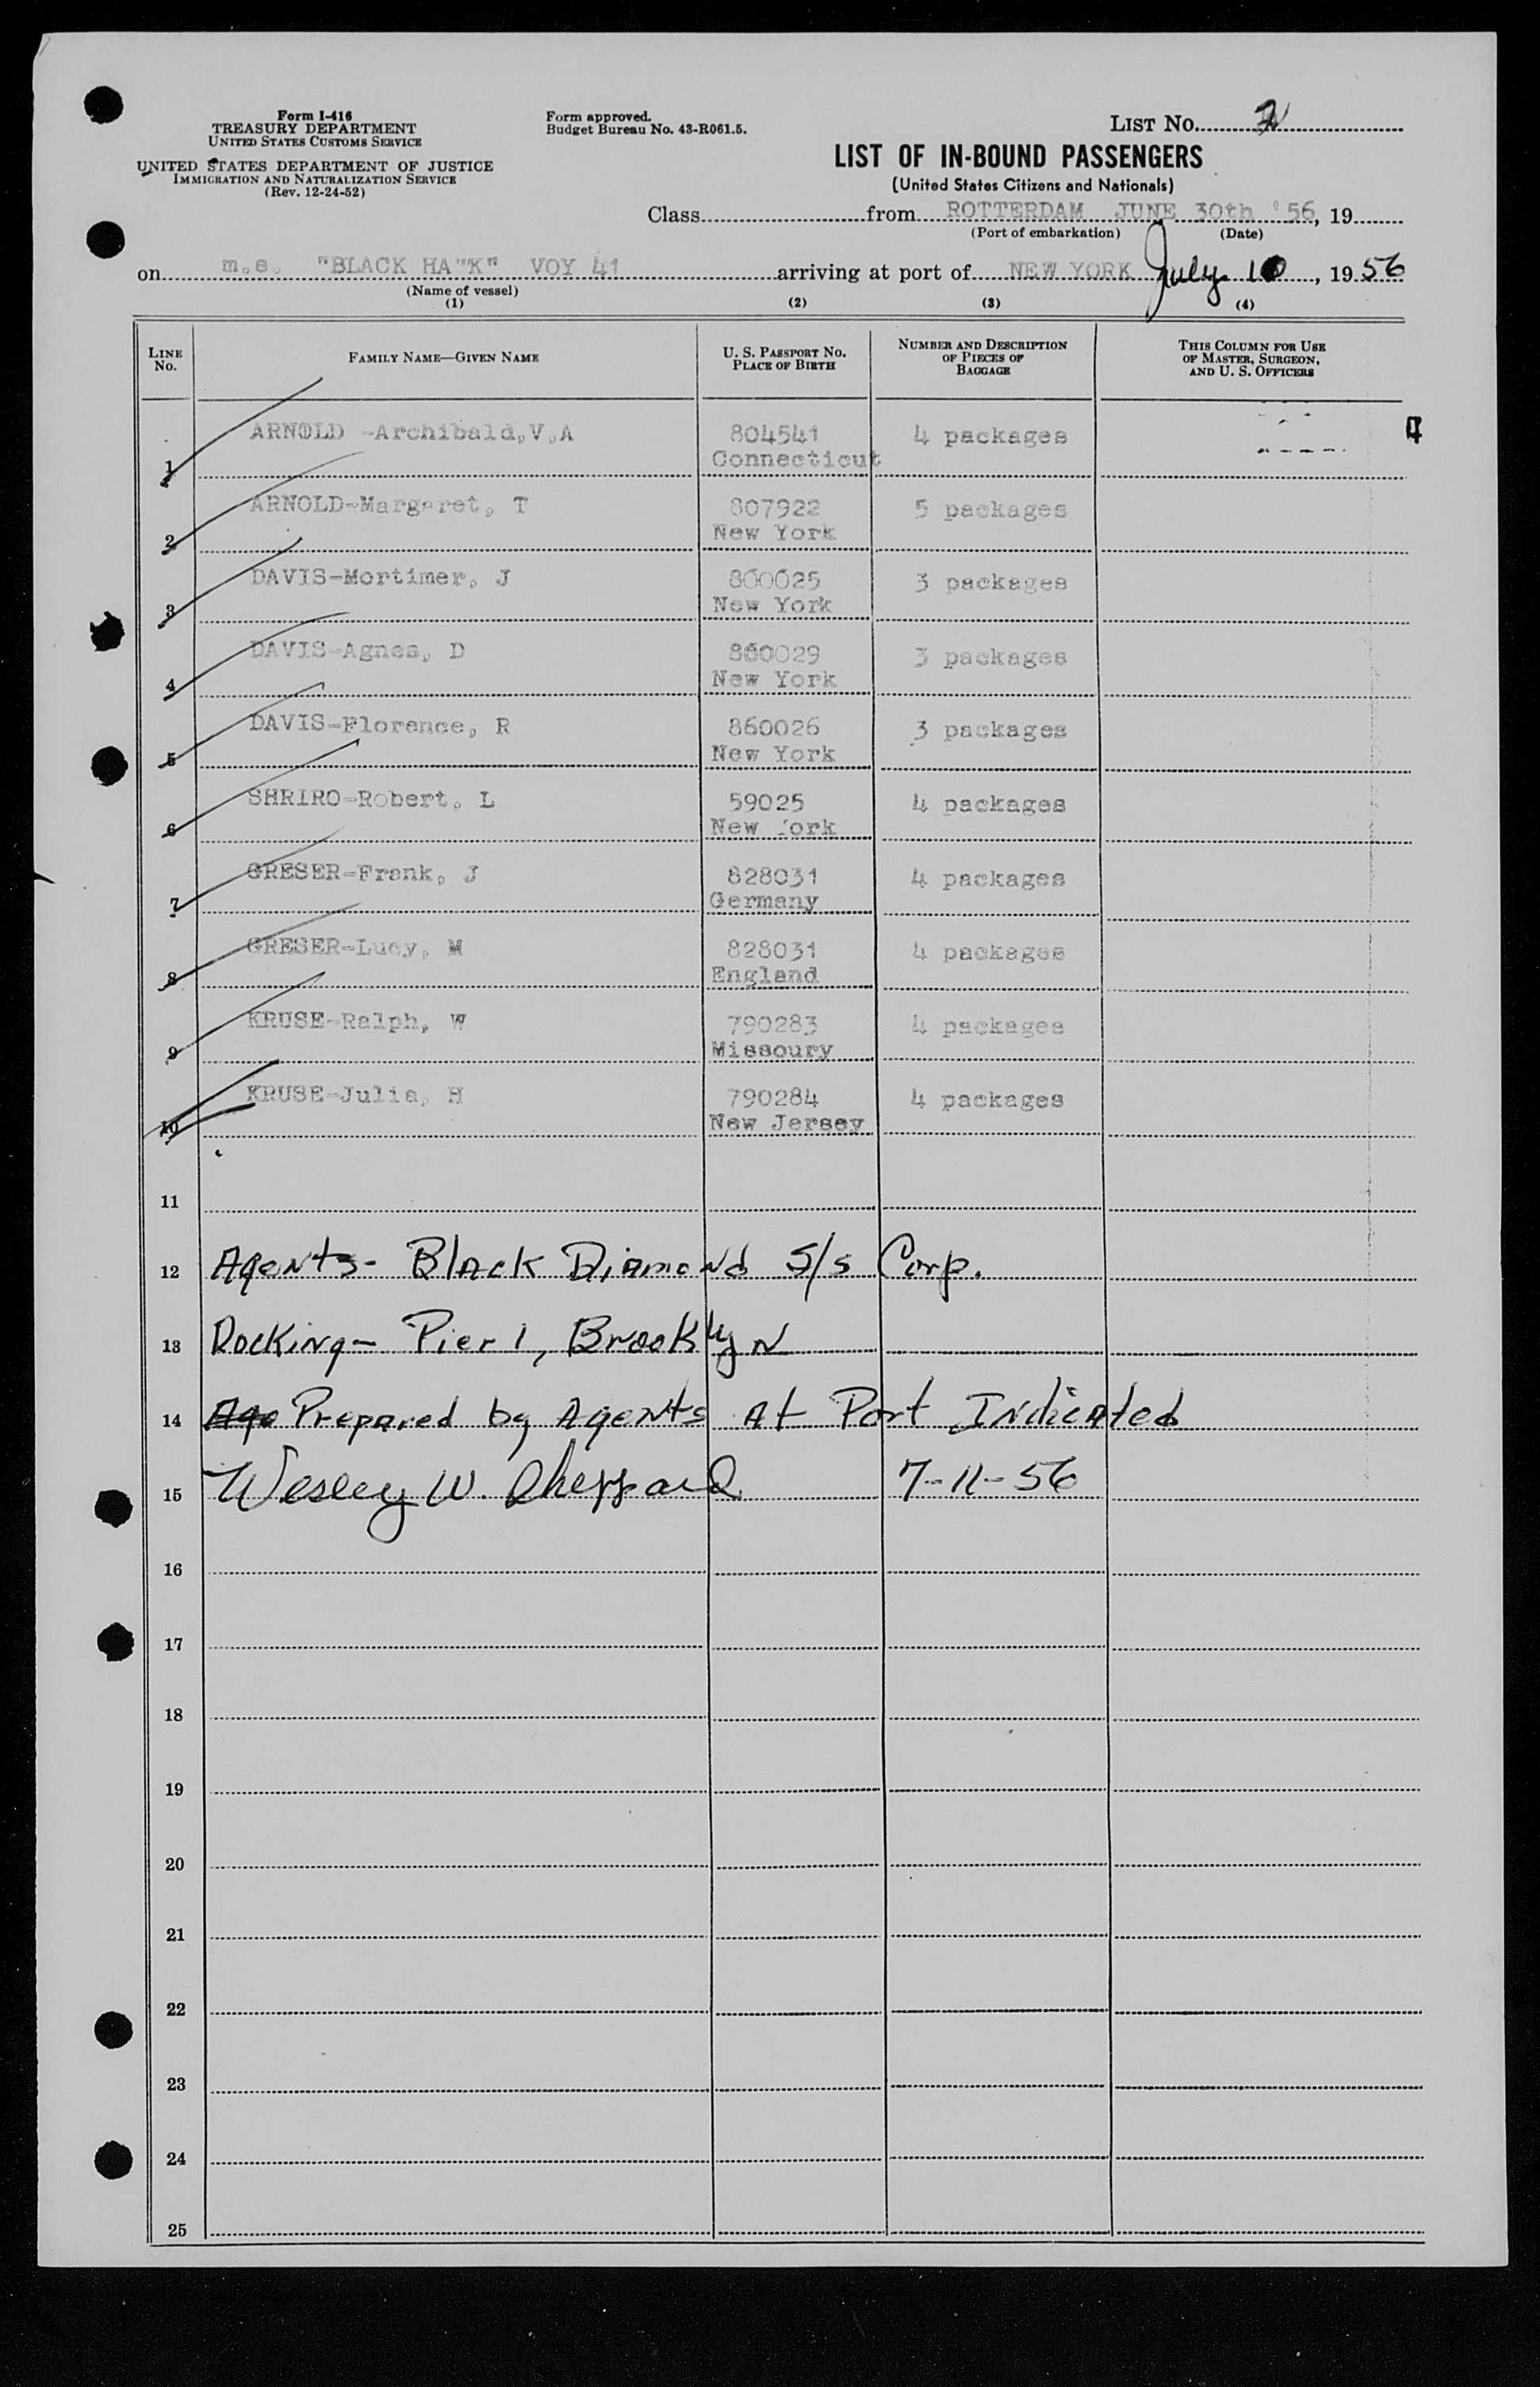 Form I-416
TREASURY DEPARTMENT
UNITED STATES CUSTOMS SERVICE
UNITED STATES DEPARTMENT OF JUSTICE
IMMIGRATION AND NATURALIZATION SERVICE
(Rev. 12-24-52)
Form approved.
Budget Bureau No. 43-R061.5.
LIST No.
LIST OF IN-BOUND PASSENGERS
(United States Citizens and Nationals)
Class from ROTTERDAM JUNE 30th '56, 19
(Port of embarkation) (Date)
on m.s. "BLACK HA"K" VOY 41 arriving at port of NEW YORK July 10, 1956
(Name of vessel)
(1) (2) (3) (4)
LINE No. FAMILY NAME—GIVEN NAME U. S. PASSPORT NO. PLACE OF BIRTH NUMBER AND DESCRIPTION OF PIECES OF BAGGAGE THIS COLUMN FOR USE OF MASTER, SURGEON, AND U. S. OFFICERS
1 ARNOLD -Archibald,V.A 804541 4 packages
Connecticut
2 ARNOLD-Margaret, T 807922 5 packages
New York
3 DAVIS-Mortimer, J 860025 3 packages
New York
4 DAVIS-Agnes, D 860029 3 packages
New York
5 DAVIS-Florence, R 860026 3 packages
New York
6 SHRIRO-Robert, L 59025 4 packages
New York
7 GRESER-Frank, J 828031 4 packages
Germany
8 GRESER-Lucy, M 828031 4 packages
England
9 KRUSE-Ralph, W 790283 4 packages
Missoury
10 KRUSE-Julia, H 790284 4 packages
New Jersey
11
12 Agents- Black Diamond S/s Corp.
13 Docking- Pier 1, Brooklyn
14 Age Prepared by Agents At Port Indicated
15 Wesley W. Sheppard 7-11-56
16
17
18
19
20
21
22
23
24
25